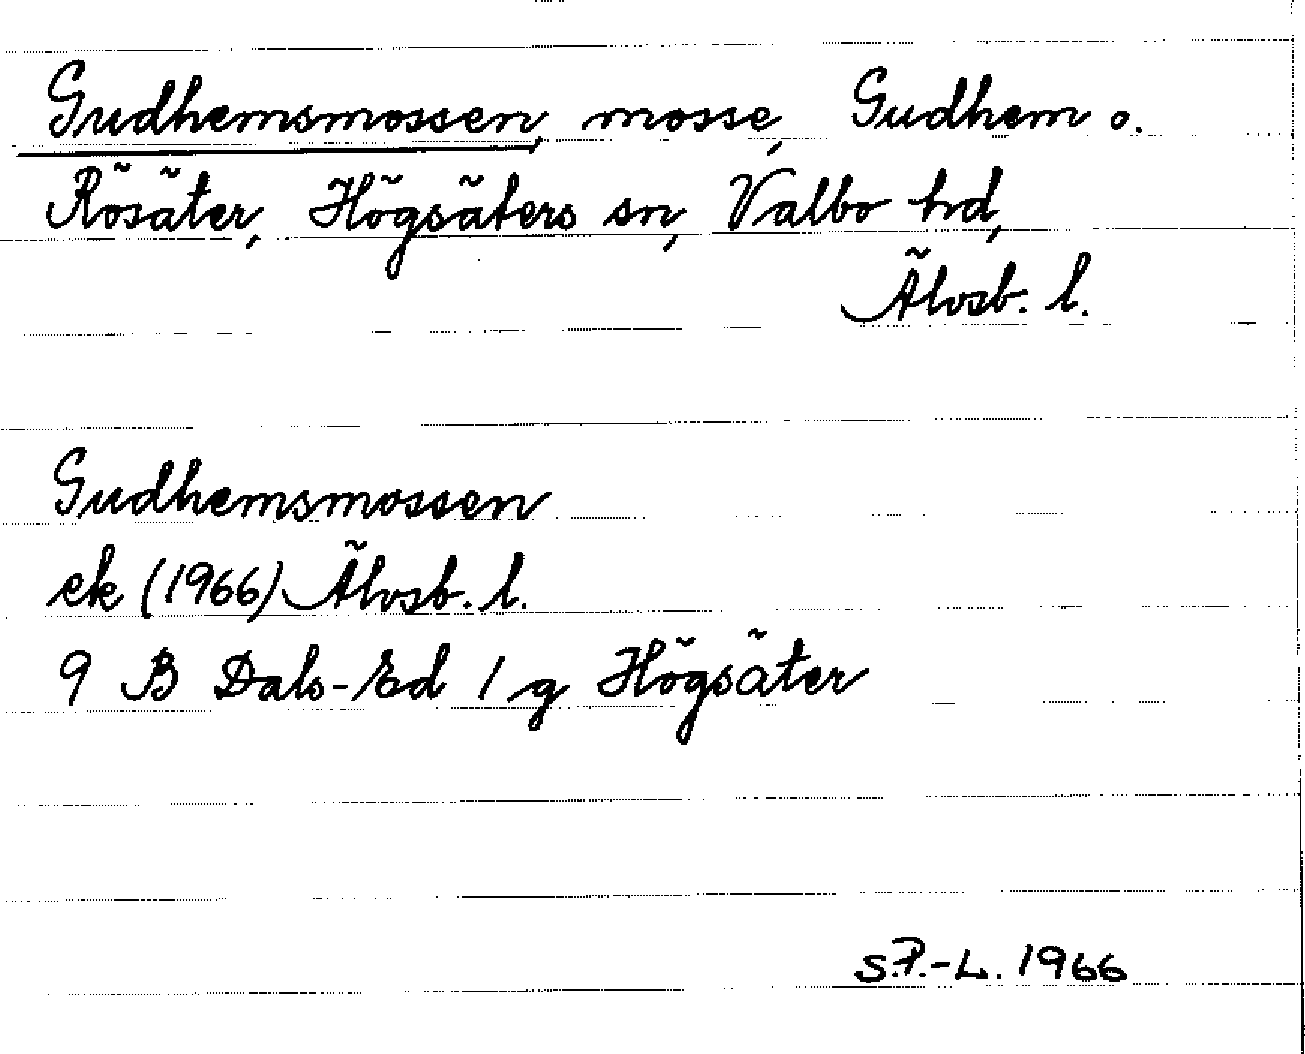 Gudhemsmossen, mosse, Gudhem o.
Rösäter, Högsäters sn, Valbo hd,
Älvsb. l.
Gudhemsmossen
ek (1966) Älvsb. l.
9 B Dals-Ed 1 g Högsäter
S.P.-L. 1966